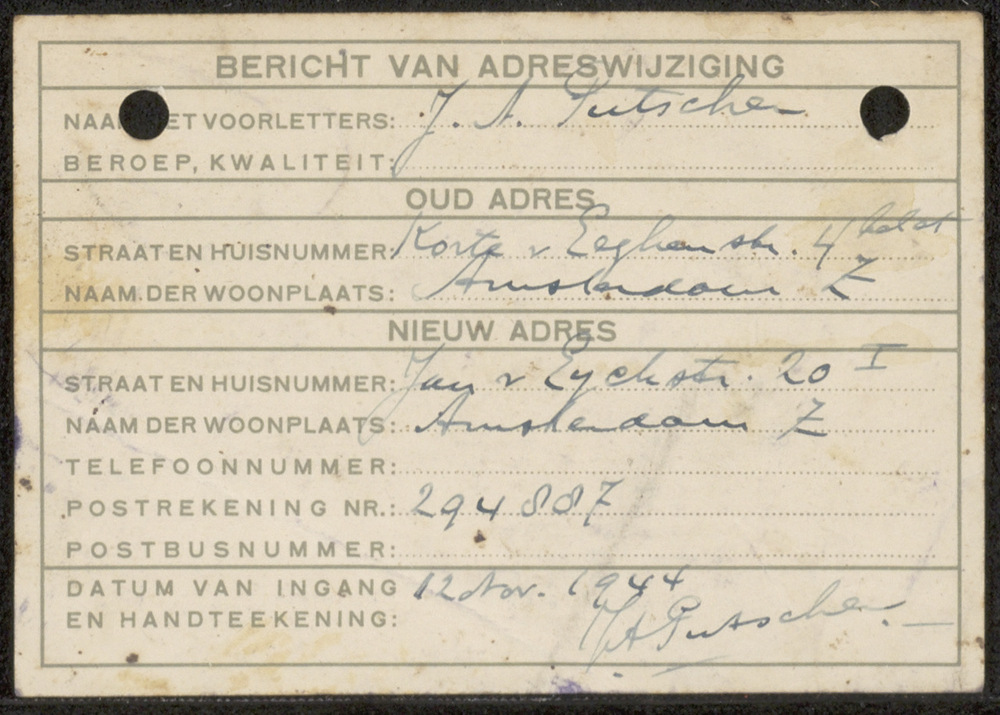 BERICHT VAN ADRESWIJZIGING
NAAM MET VOORLETTERS: J. A. Putscher
BEROEP, KWALITEIT:
OUD ADRES
STRAAT EN HUISNUMMER: Korte v Eeghenstr. 4
NAAM DER WOONPLAATS: Amsterdam Z
NIEUW ADRES
STRAAT EN HUISNUMMER: Jan v Eyckstr. 20 I
NAAM DER WOONPLAATS: Amsterdam Z
TELEFOONNUMMER:
POSTREKENING NR.: 294887
POSTBUSNUMMER:
DATUM VAN INGANG 12 Nov. 1944
EN HANDTEEKENING: JA Putscher.